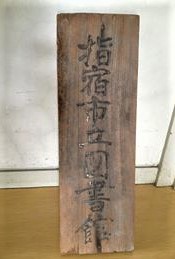 指宿市立図書館